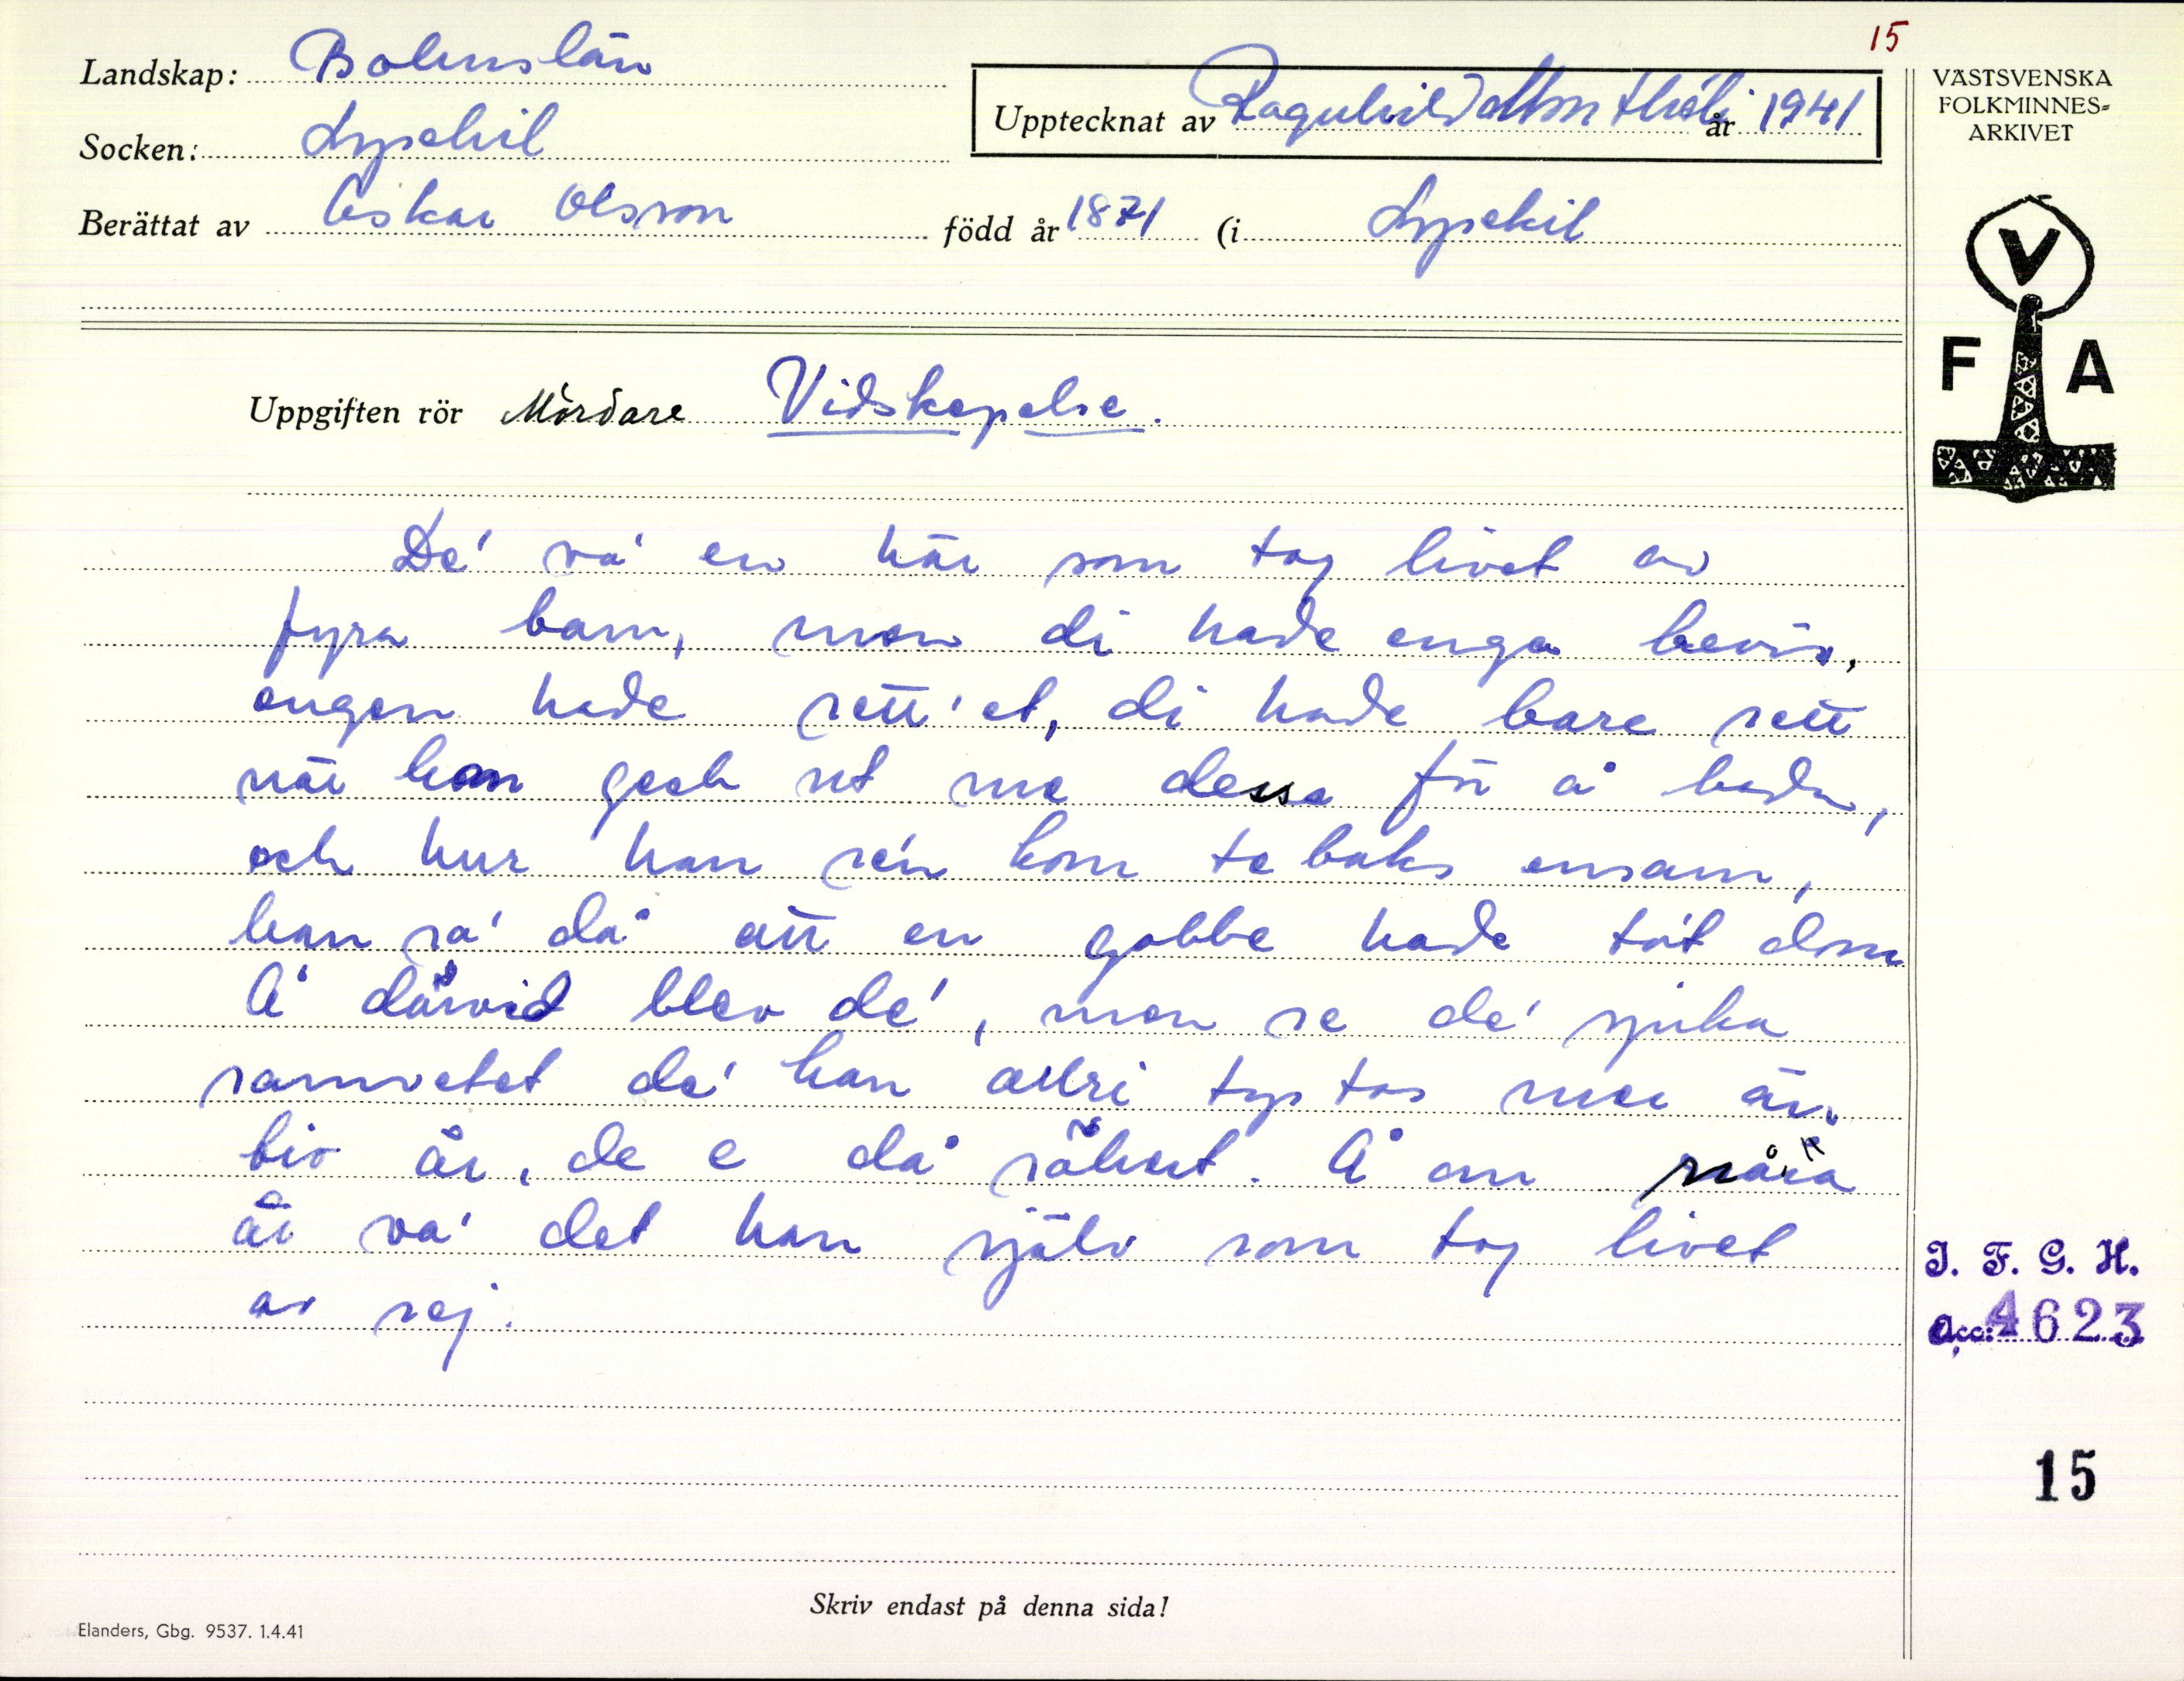 15
Landskap: Bohuslän
Upptecknat av Ragnhild år 1941
Socken: Lysekil
Berättat av Oskar Olsson född år 1871 (i Lysekil
VÄSTSVENSKA
FOLKMINNES-
ARKIVET
V
F A
Uppgiften rör Mördare Vidskepelse.
De' va' en här som tog livet av
fyra barn, men di hade enga bevis,
engen hade sett'et, di hade bare sett
när han gech ut me dessa för å bada,
och hur han se'n kom tebaks ensam,
han sa' då att en gobbe hade tat dom
Å därvid blev de', men se de' sjuka
samvetet de' kan allri tystas mer än
liv är, de e då säkert. Å om nåra
år va' det han själv som tog livet
av sej.
I. F. G. H.
Acc: 4623
15
Skriv endast på denna sida!
Elanders, Gbg. 9537. 1.4.41